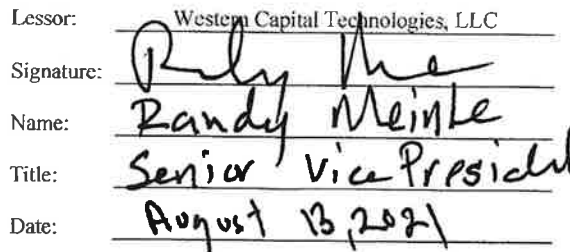 Lessor: Western Capital Technologies, LLC
Signature:
Name: Randy Meinke
Title: Senior Vice President
Date: August 13, 2021